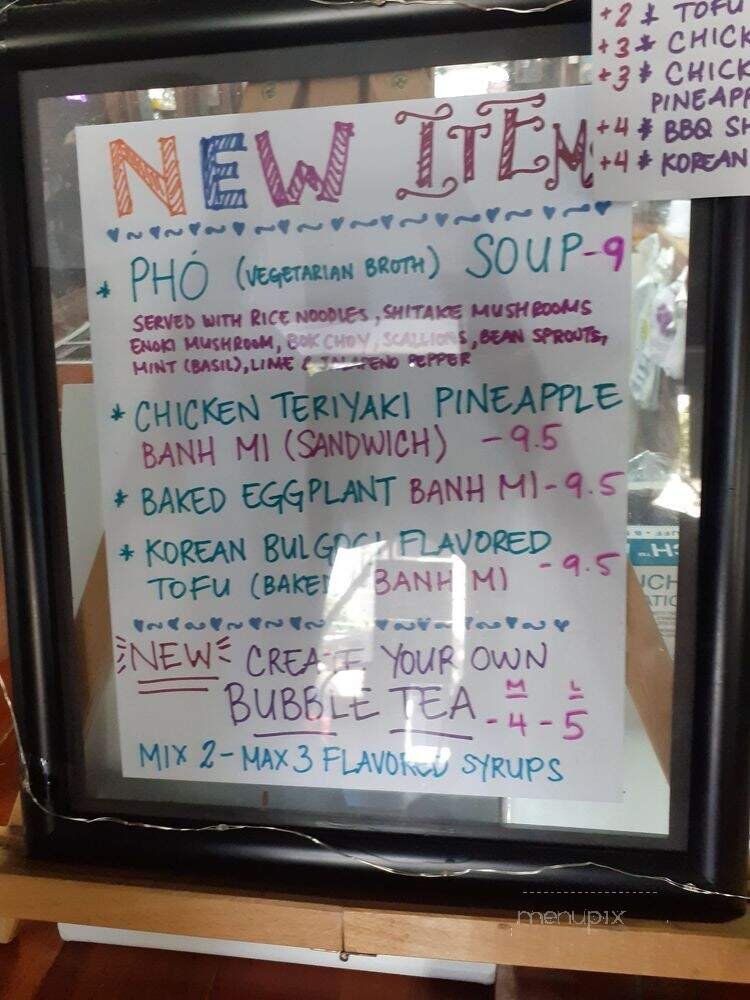 +2 * TOFU
+3 * CHICK
+3 * CHICK
PINEAPP
+4 * BBQ SH
+4 * KOREAN
NEW ITEM
* PHÓ (VEGETARIAN BROTH) SOUP-9
SERVED WITH RICE NOODLES, SHITAKE MUSHROOMS
ENOKI MUSHROOM, BOK CHOY, SCALLIONS, BEAN SPROUTS,
MINT (BASIL), LIME & JALAPENO PEPPER
* CHICKEN TERIYAKI PINEAPPLE
BANH MI (SANDWICH) -9.5
* BAKED EGGPLANT BANH MI-9.5
* KOREAN BULGOGI FLAVORED
TOFU (BAKED) BANH MI -9.5
NEW CREATE YOUR OWN
BUBBLE TEA M -4 - L 5
MIX 2-MAX 3 FLAVORED SYRUPS
menupix